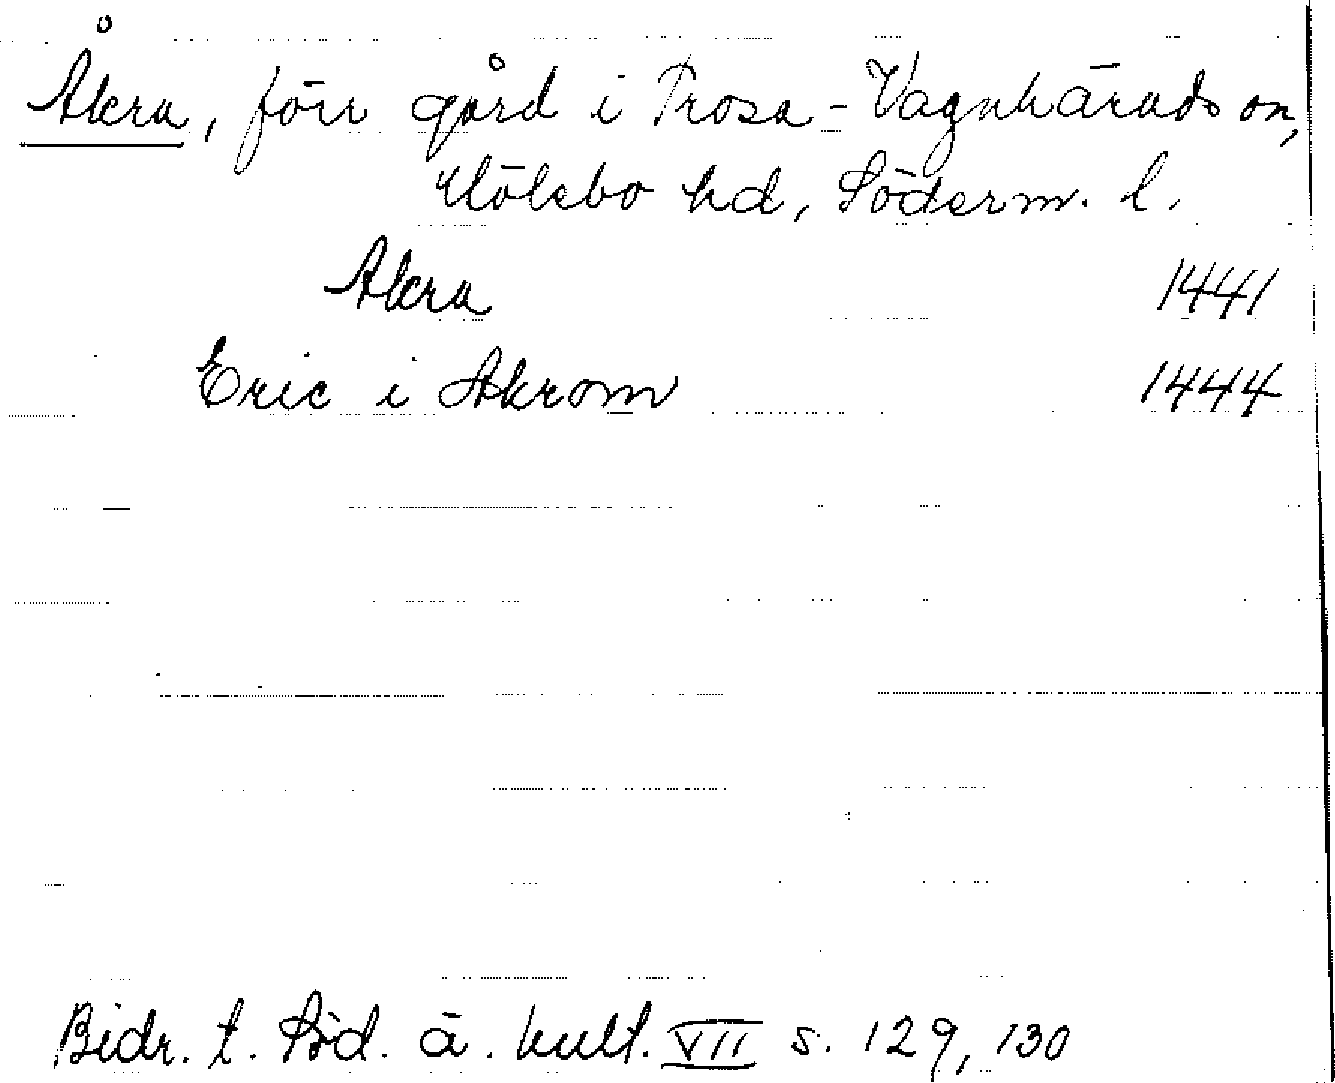 Åkra, förr gård i Trosa-Vagnhärads sn,
Hölebo hd, Söderm. l.
Akra 1441
Eric i Akrom 1444
Bidr. t. Söd. ä. kult. VII s. 129, 130